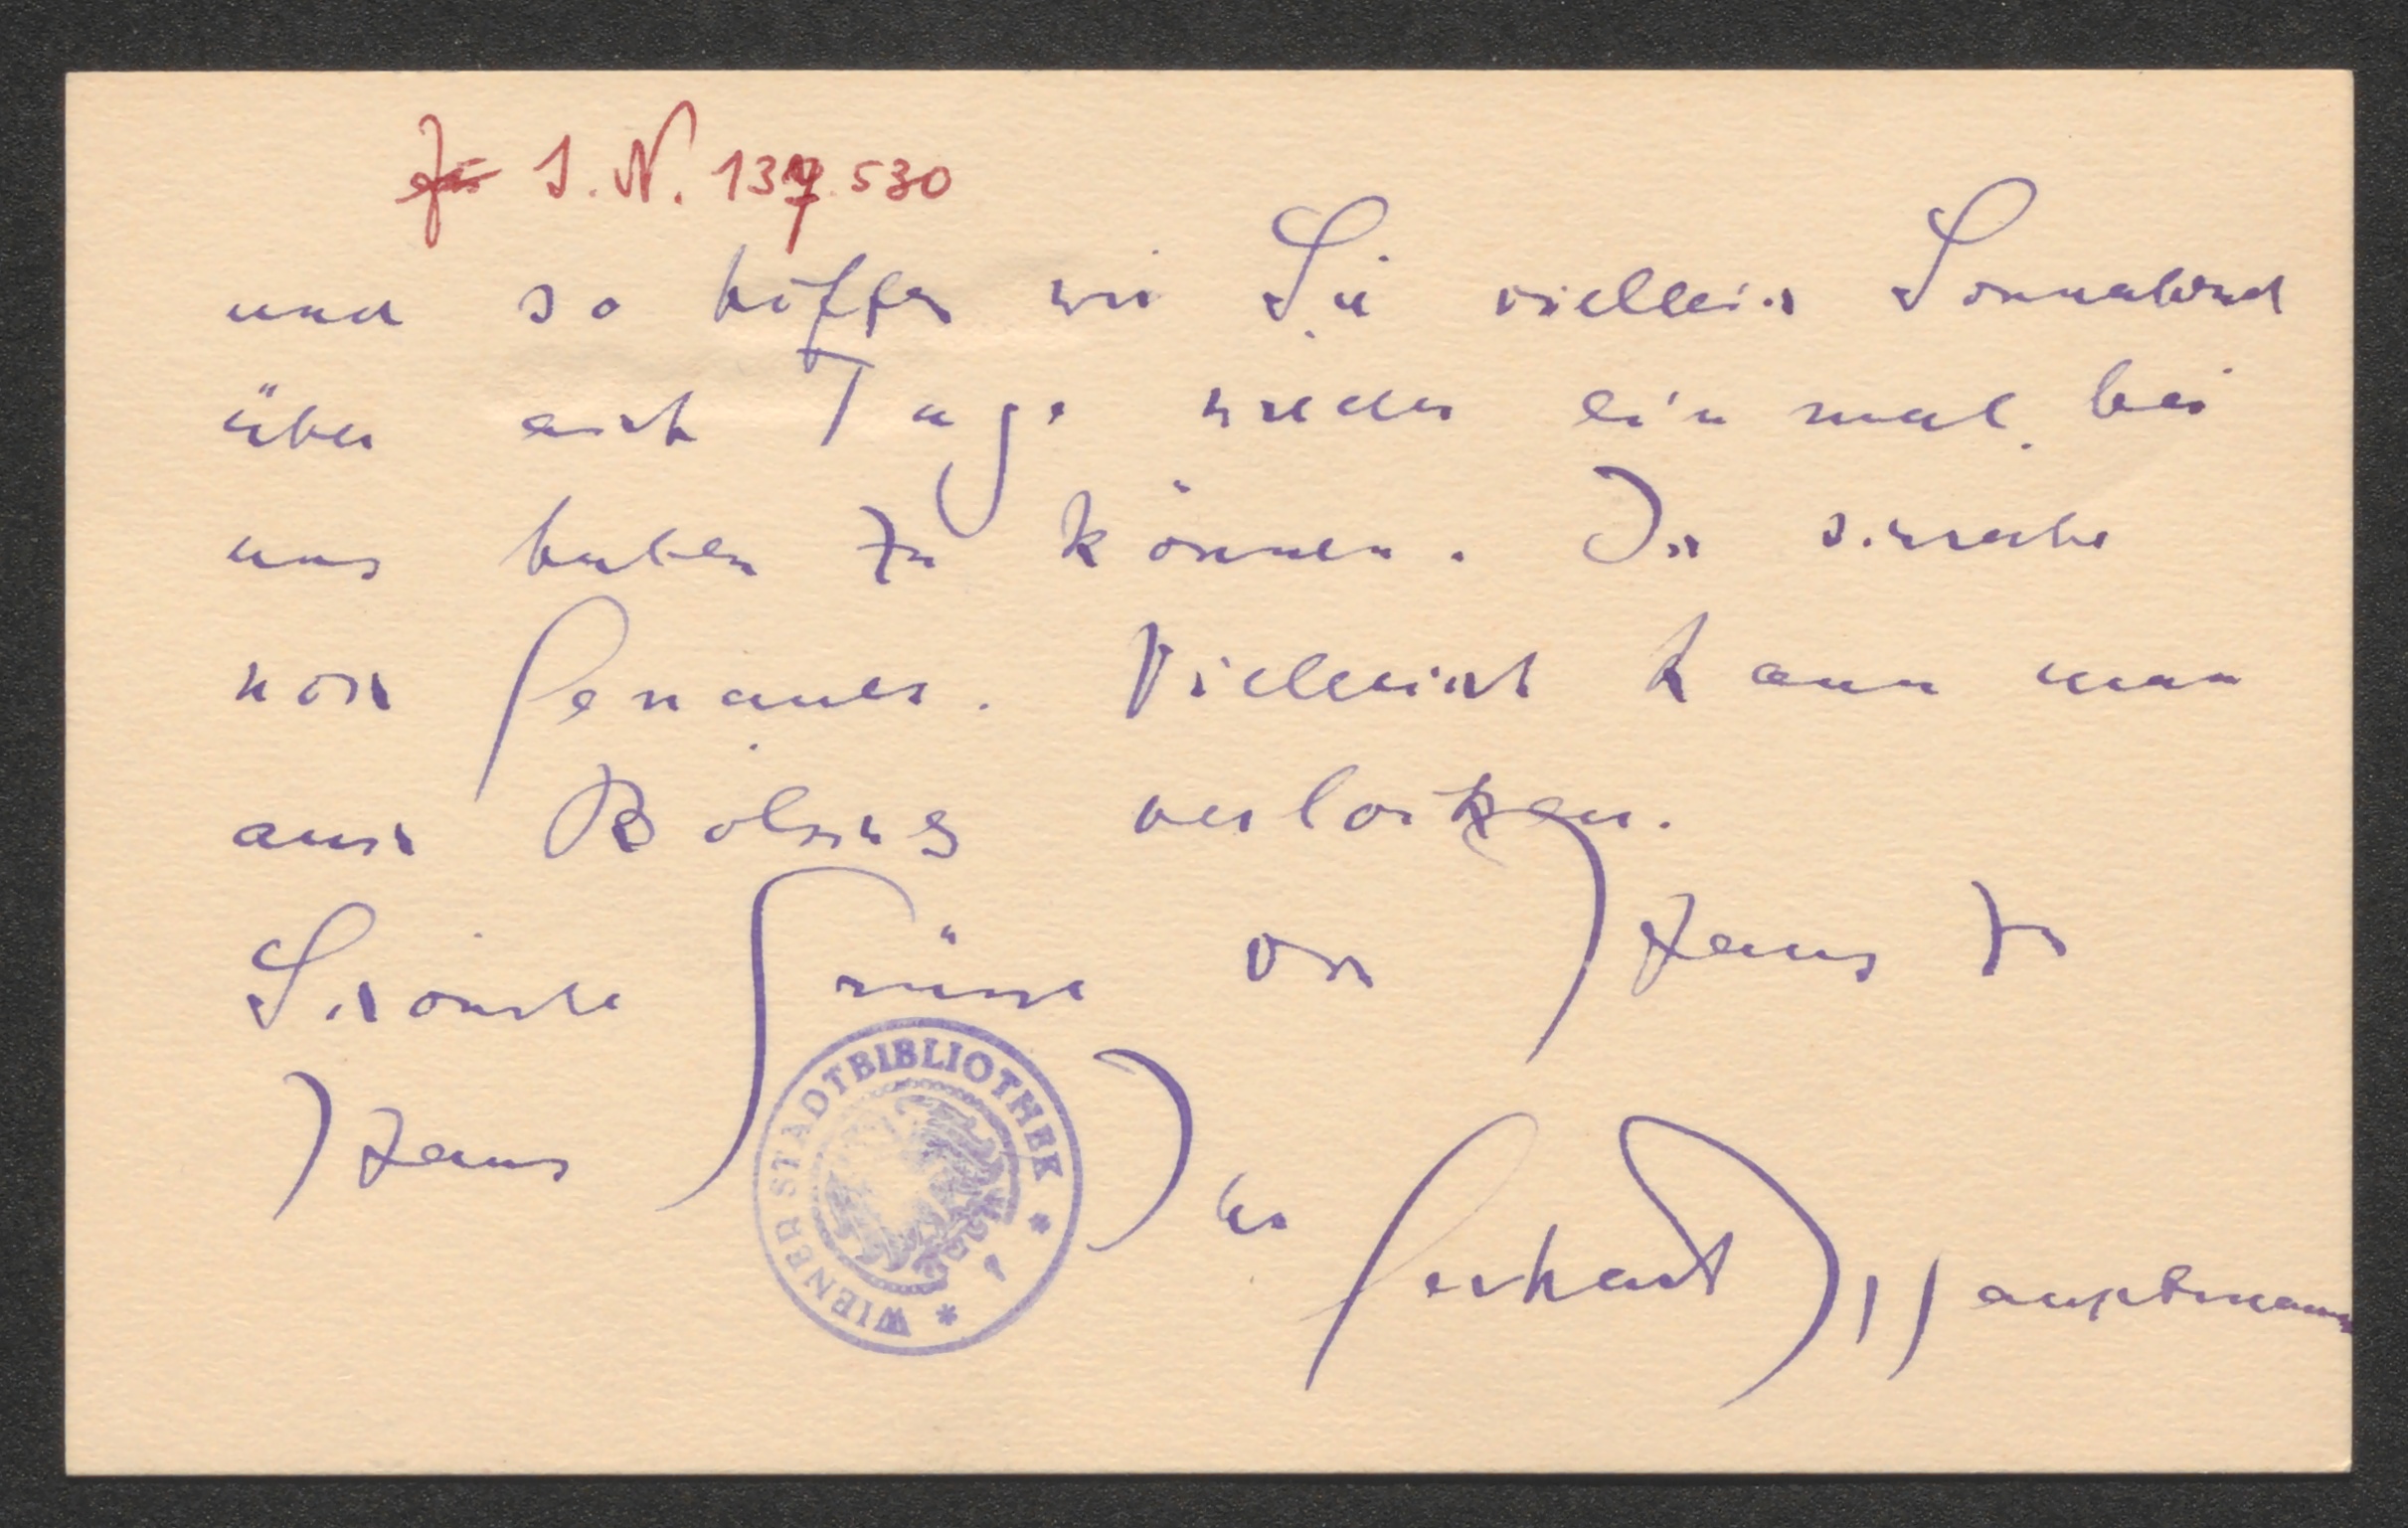 I. N. 137.530
und so hoffen wir Sie vielleicht Sonnabend
über acht Tage wieder ein mal bei
uns haben zu können. Ich schreibe
noch Genaues. Vielleicht kann man
auch Bölsche verlocken.
Schönste Grüsse von Haus zu
Haus Ihr Gerhart Hauptmann
WIENER STADTBIBLIOTHEK